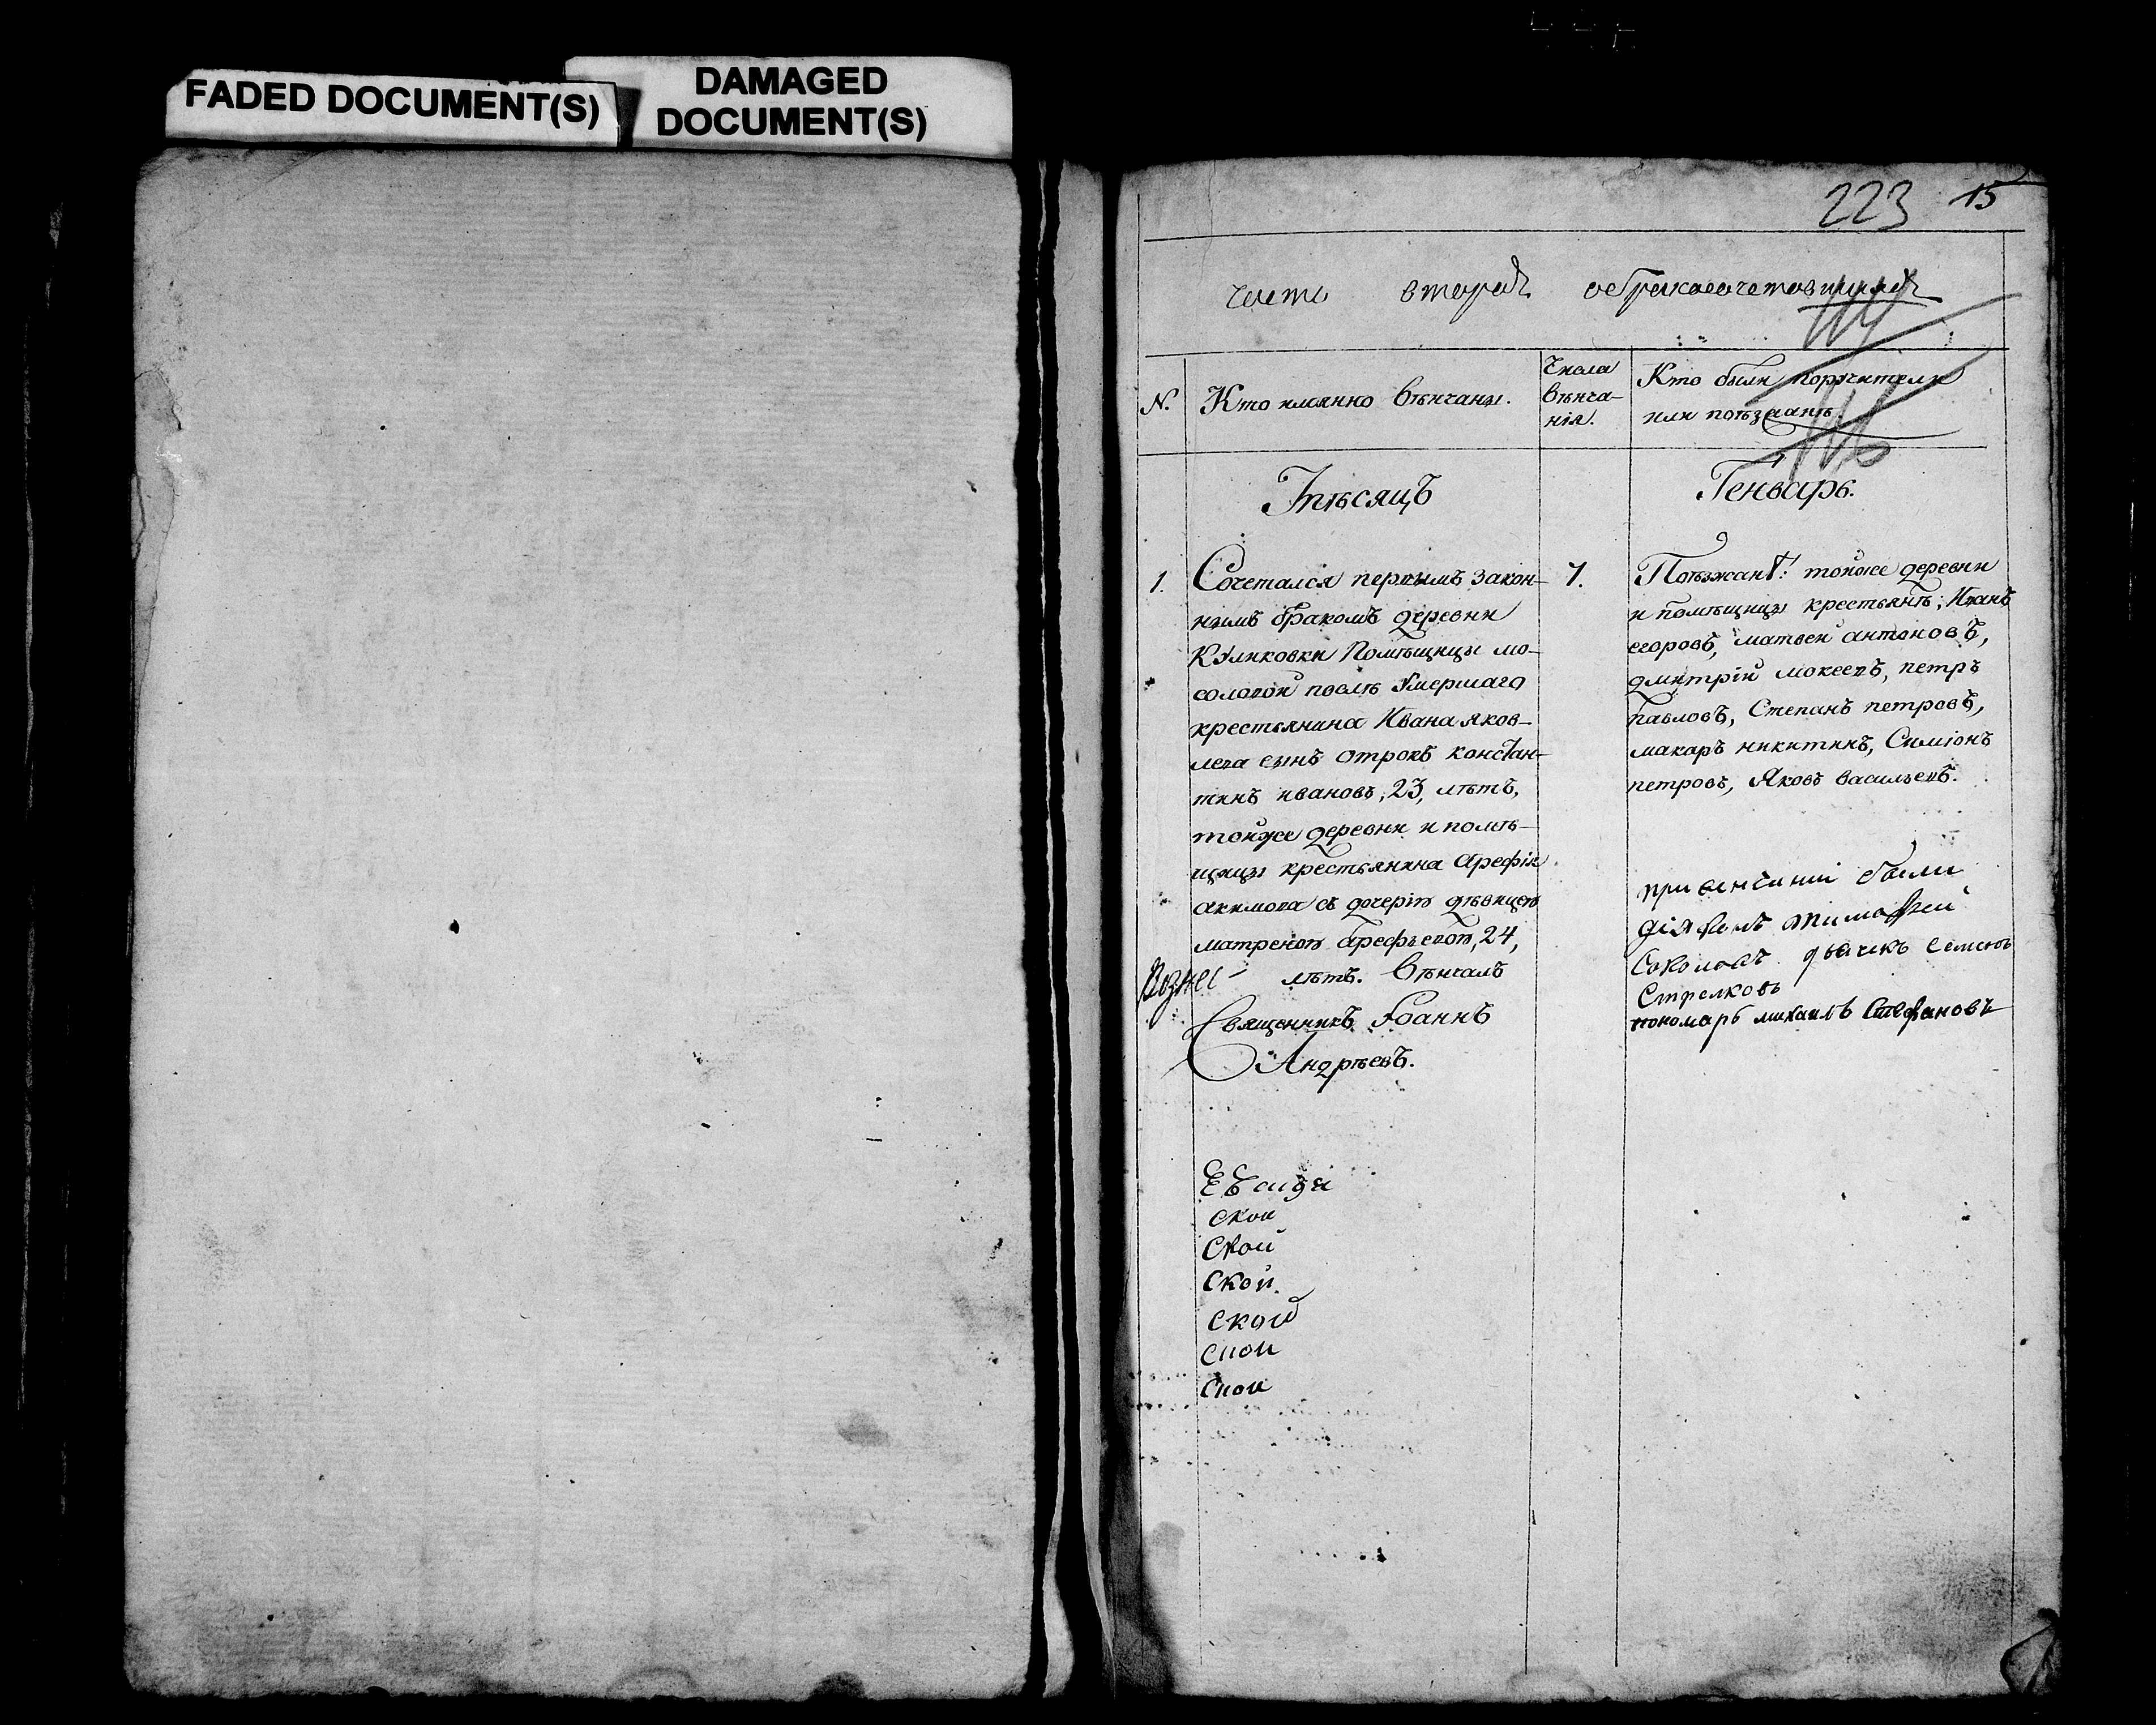 FADED DOCUMENT(S)
DAMAGED
DOCUMENT(S)
223 15
часть вторая обракосочетавшихся
N. Кто имянно вѣнчаны.
Числа
вѣнча-
нія.
Кто были поручители
или поѣзжанѣ.
Мѣсяцъ
Генварь.
1. Сочетался первымъ закон-
нымъ бракомъ деревни
Куликовки Помѣщицы мо-
соловой послѣ умершаго
крестьянина Ивана яков-
лева сынъ отрокъ констан-
тинъ ивановъ, 23, лѣтъ,
тойже деревни и помѣ-
щицы крестьянина Арефія
акимова съ дочерію дѣвицею
матреною Арефьевою, 24,
лѣтъ. Вѣнчалъ
Вознес-
Священникъ Іоаннъ
Андрѣевъ.
7.
Поѣзжанѣ: тойже деревни
и помѣщицы крестьянѣ, Иванъ
егоровъ, матвей антоновъ,
дмитрій мокеевъ, петръ
павловъ, Степанъ петровъ,
макаръ никитинъ, Симіонъ
петровъ, Яковъ васильевъ.
при венчании были
діяконъ тимофей
Соколовъ дьячекъ Семионъ
Стрелковъ
пономарь михаилъ Стефановъ
ской
ской
ской.
ской
ской
ской